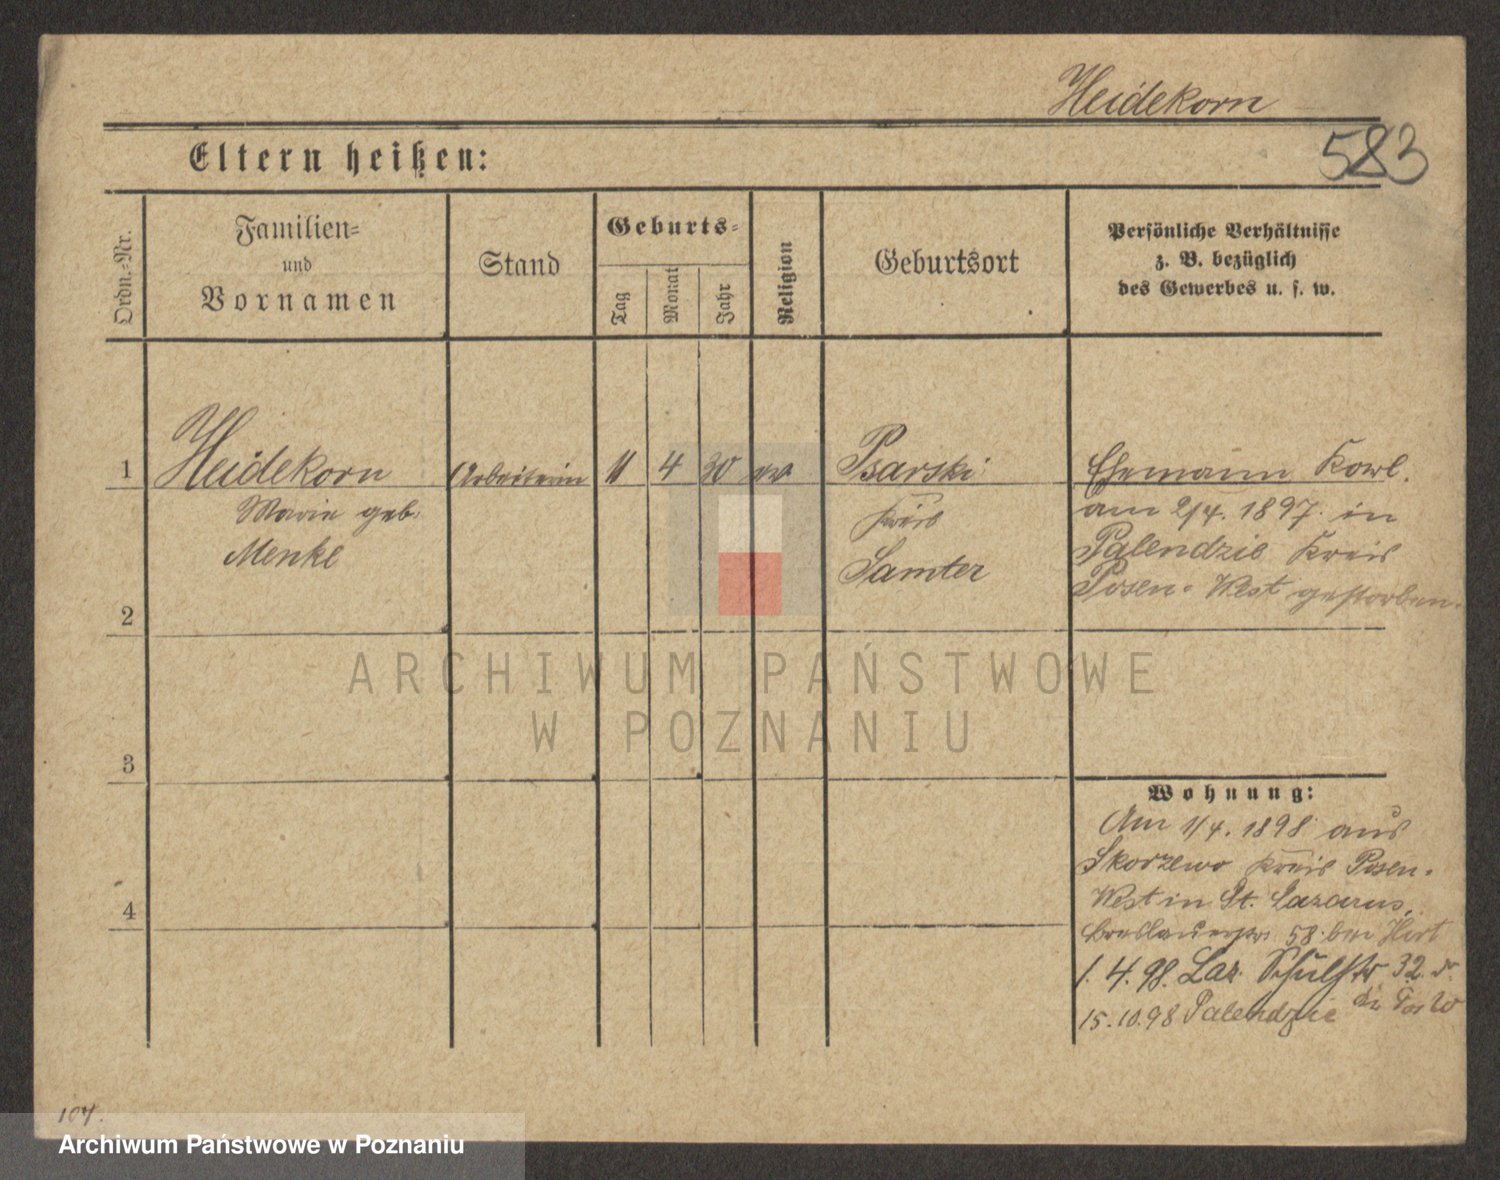 Heidekorn
583
Eltern heißen:
Ordn.-Nr.
Familien-
und
Vornamen
Stand
Geburts-
Tag
Monat
Jahr
Religion
Geburtsort
Persönliche Verhältnisse
z. B. bezüglich
des Gewerbes u. s. w.
1
Heidekorn
Marie geb.
Menke
Arbeiterin
11
4
30
ev
Psarski
Kreis
Samter
Ehemann Karl.
am 2/4. 1897. in
Palendzie Kreis
Posen-West gestorben.
2
3
4
ARCHIWUM PAŃSTWOWE
W POZNANIU
Wohnung:
Am 1/4. 1898 aus
Skorzewo Kreis Posen-
West in St. Lazarus,
Breslauerstr. 58 bei Hirt
1. 4. 98. Laz. Schulstr 32.
15. 10. 98 Palendzie
107.
Archiwum Państwowe w Poznaniu